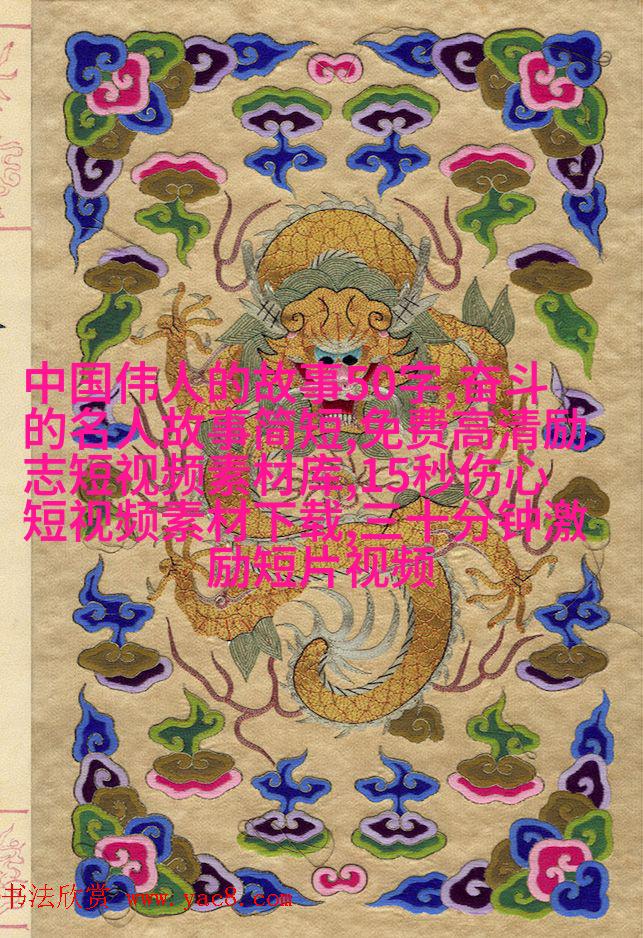 中国伟人的故事50字,奋斗
的名人故事简短,免费高清励
志短视频素材库,15秒伤心
短视频素材下载,三十分钟激
励短片视频
书法欣赏 www.yac8.com